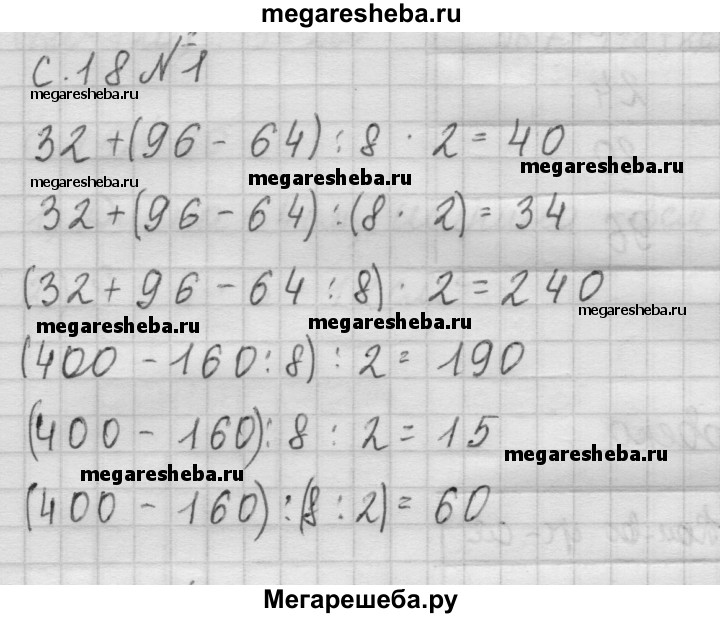 megaresheba.ru
с. 18 №1
megaresheba.ru
32 + (96 - 64) : 8 · 2 = 40
megaresheba.ru
megaresheba.ru
megaresheba.ru
32 + (96 - 64) : (8 · 2) = 34
(32 + 96 - 64 : 8) · 2 = 240
megaresheba.ru
megaresheba.ru
megaresheba.ru
(400 - 160 : 8) : 2 = 190
(400 - 160) : 8 : 2 = 15
megaresheba.ru
megaresheba.ru
(400 - 160) : (8 : 2) = 60
Мегарешеба.ру